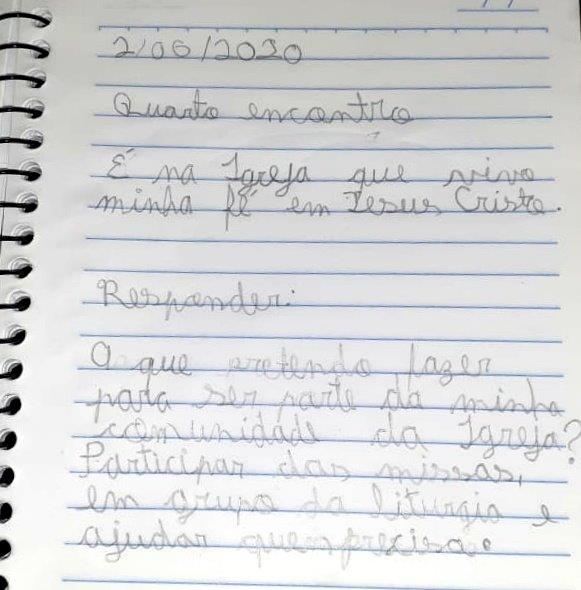 2/06/2020
Quarto encontro
É na Igreja que vivo
minha fé em Jesus Cristo.
Responder:
O que pretendo fazer
para ser parte da minha
comunidade da Igreja?
Participar das missas,
em grupo da liturgia e
ajudar quem precisa.